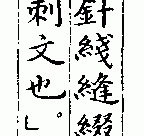 針綫縫綴
刺文也。」